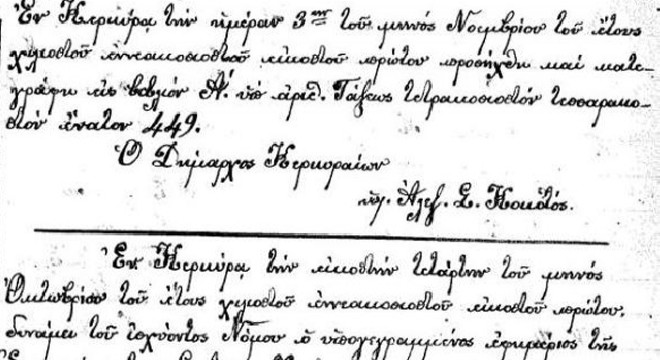 Ἐν Κερκύρᾳ τὴν ἡμέραν 3ην τοῦ μηνὸς Νοεμβρίου τοῦ ἔτους
χιλιοστοῦ ἐννεακοσιοστοῦ εἰκοστοῦ πρώτου προσήχθη καὶ κατε-
γράφη εἰς βιβλίον Α΄. ὑπ' ἀριθ. Τάξεως τετρακοσιοστὸν τεσσαρακο-
στὸν ἔνατον 449.
Ὁ Δήμαρχος Κερκυραίων
ὑπ. Ἀλεξ. Σ.
Ἐν Κερκύρᾳ τὴν εἰκοστὴν τετάρτην τοῦ μηνὸς
Ὀκτωβρίου τοῦ ἔτους χιλιοστοῦ ἐννεακοσιοστοῦ εἰκοστοῦ πρώτου,
δυνάμει τοῦ ἰσχύοντος Νόμου ὁ ὑπογεγραμμένος ἐφημέριος τῆς